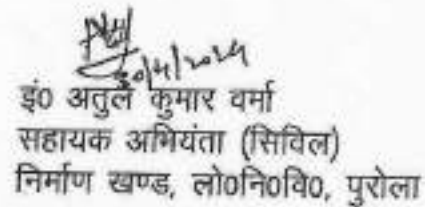 30/4/2024
इं0 अतुल कुमार वर्मा
सहायक अभियंता (सिविल)
निर्माण खण्ड, लो0नि0वि0, पुरोला